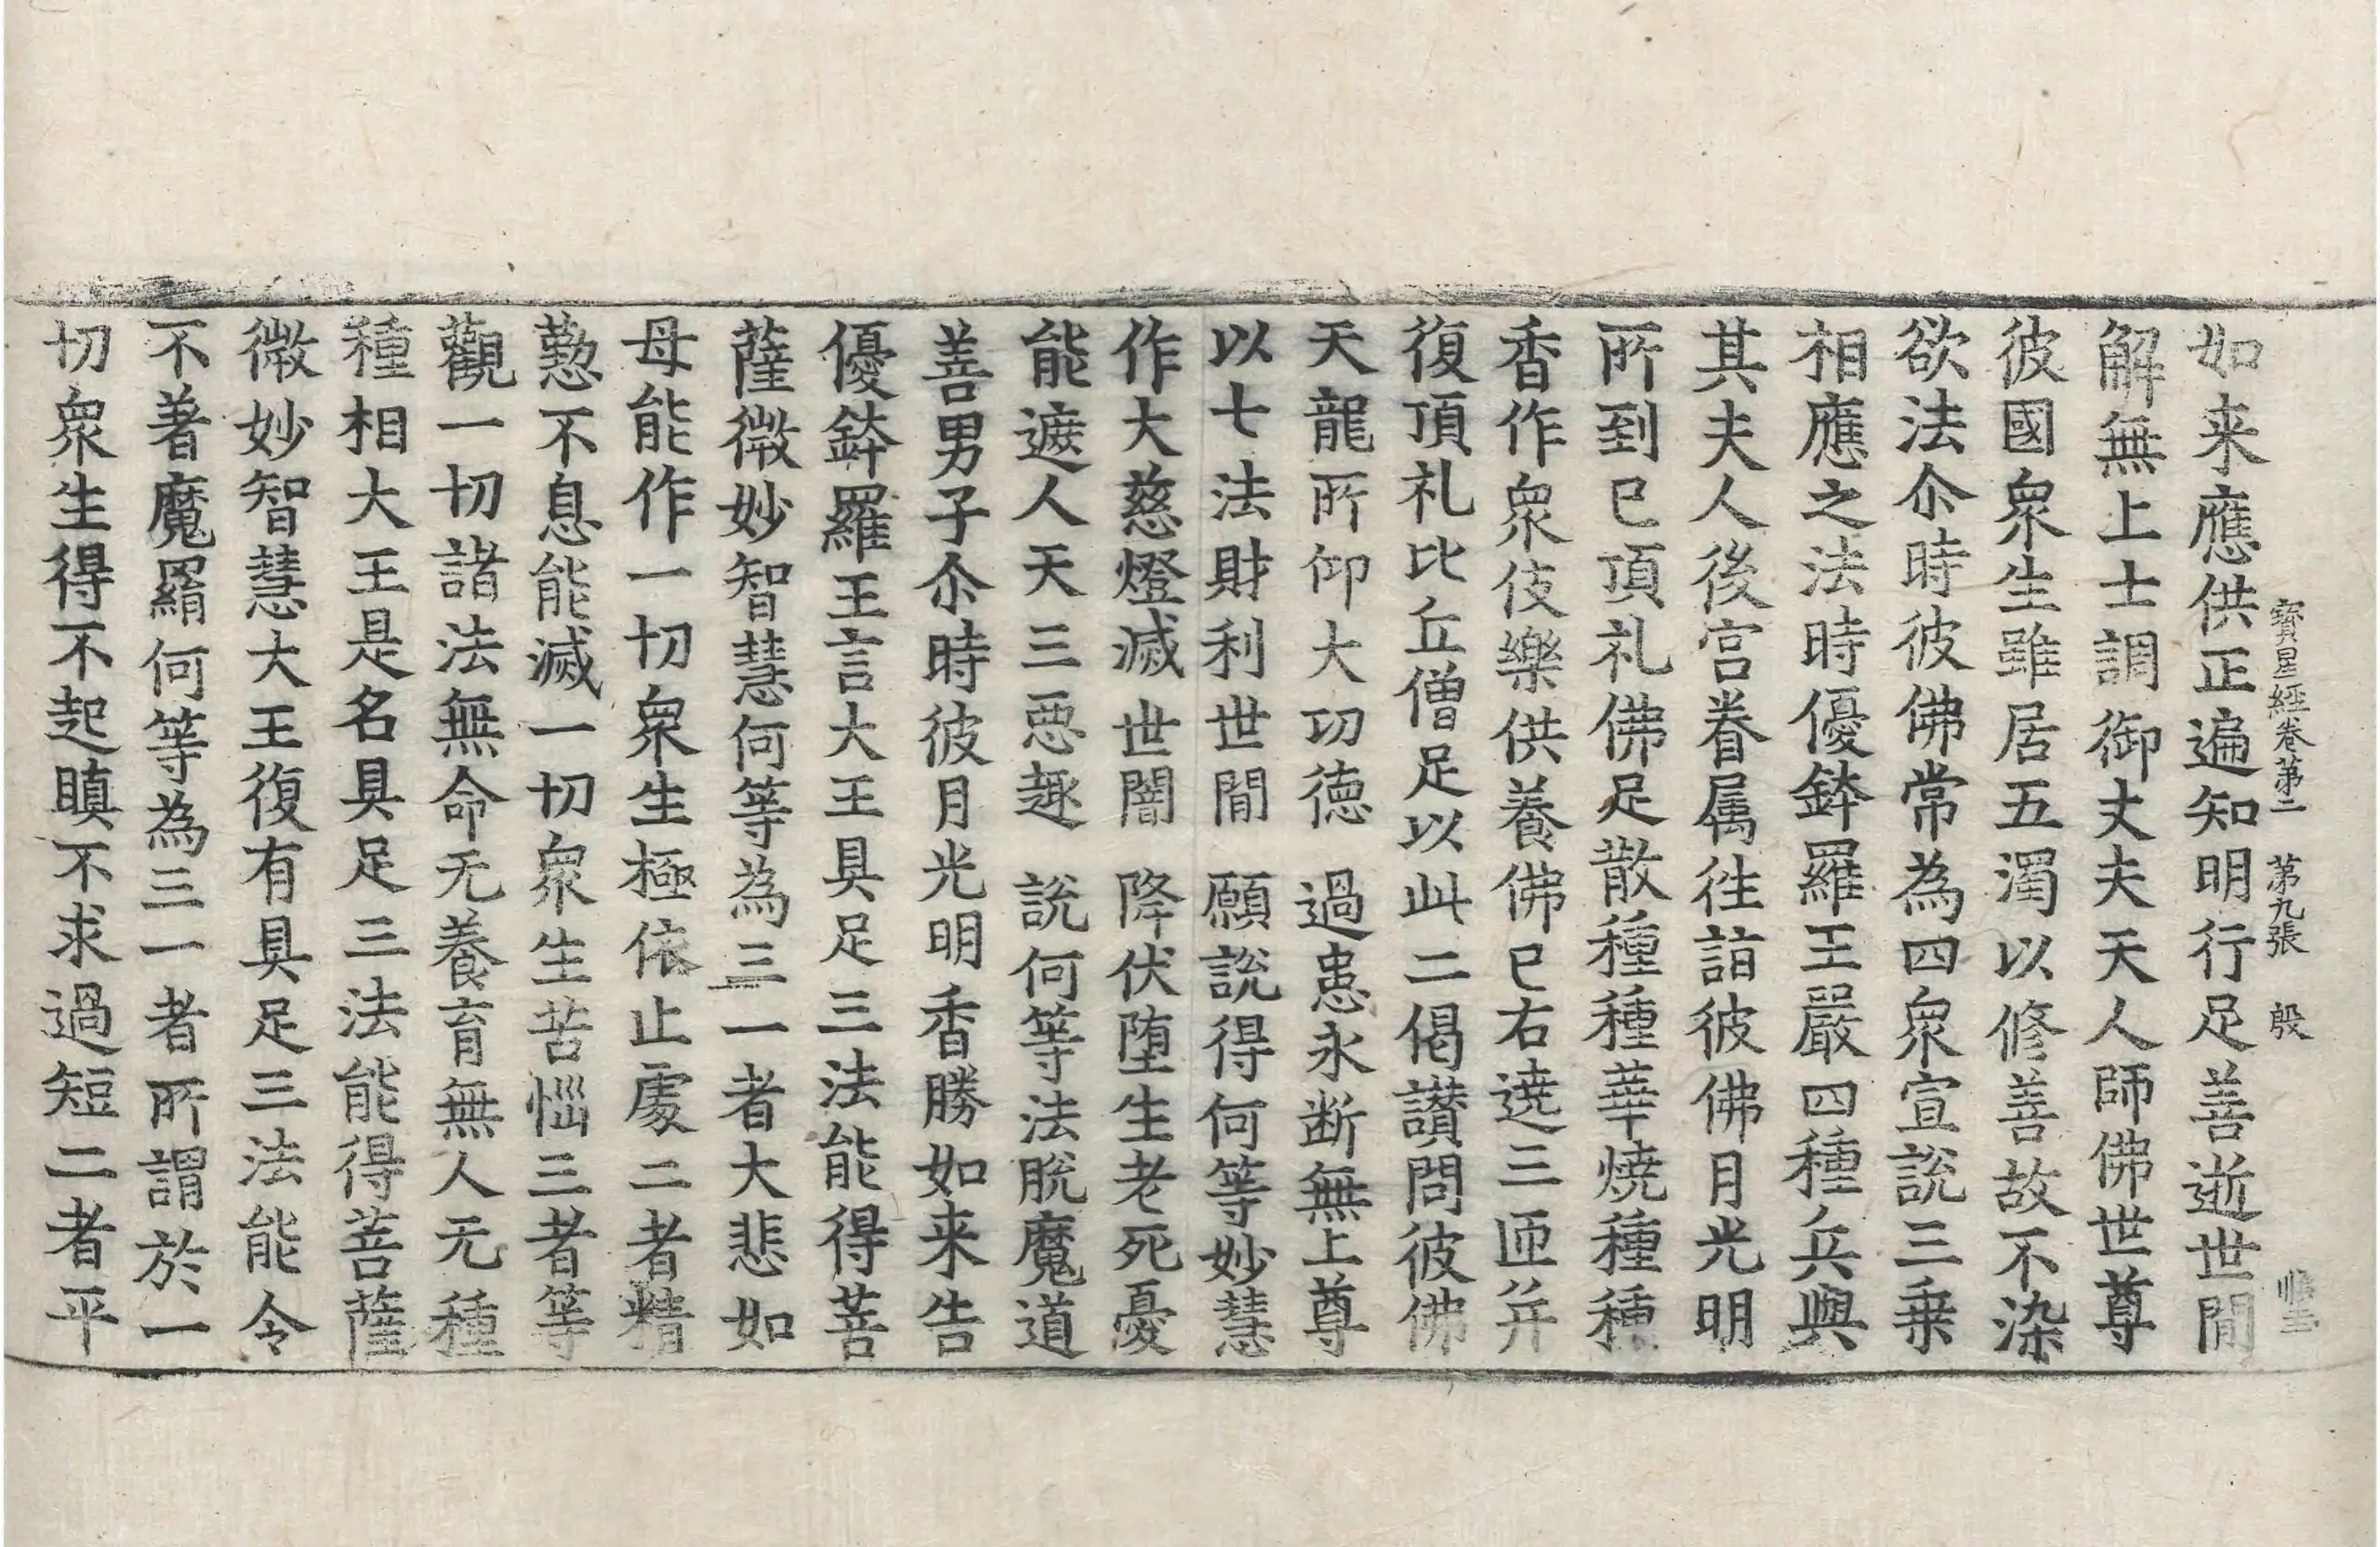 寶星經卷第二　第九張　殷
如来應供正遍知明行足善逝世間
解無上士調御丈夫天人師佛世尊
彼國衆生雖居五濁以修善故不染
欲法尒時彼佛常為四衆宣說三乗
相應之法時優鉢羅王嚴四種兵與
其夫人後宫眷属徃詣彼佛月光明
所到已頂礼佛足散種種華燒種種
香作衆伎樂供養佛已右遶三匝并
復頂礼比丘僧足以此二偈讃問彼佛
天龍所仰大功徳　過患永断無上尊
以七法財利世間　願說得何等妙慧
作大慈燈滅世闇　降伏堕生老死憂
能遮人天三惡趣　說何等法脫魔道
善男子尒時彼月光明香勝如来告
優鉢羅王言大王具足三法能得菩
薩微妙智慧何等為三一者大悲如
母能作一切衆生極依止處二者精
懃不息能滅一切衆生苦惱三者等
觀一切諸法無命无養育無人无種
種相大王是名具足三法能得菩薩
微妙智慧大王復有具足三法能令
不著魔羂何等為三一者所謂於一
切衆生得不起瞋不求過短二者平